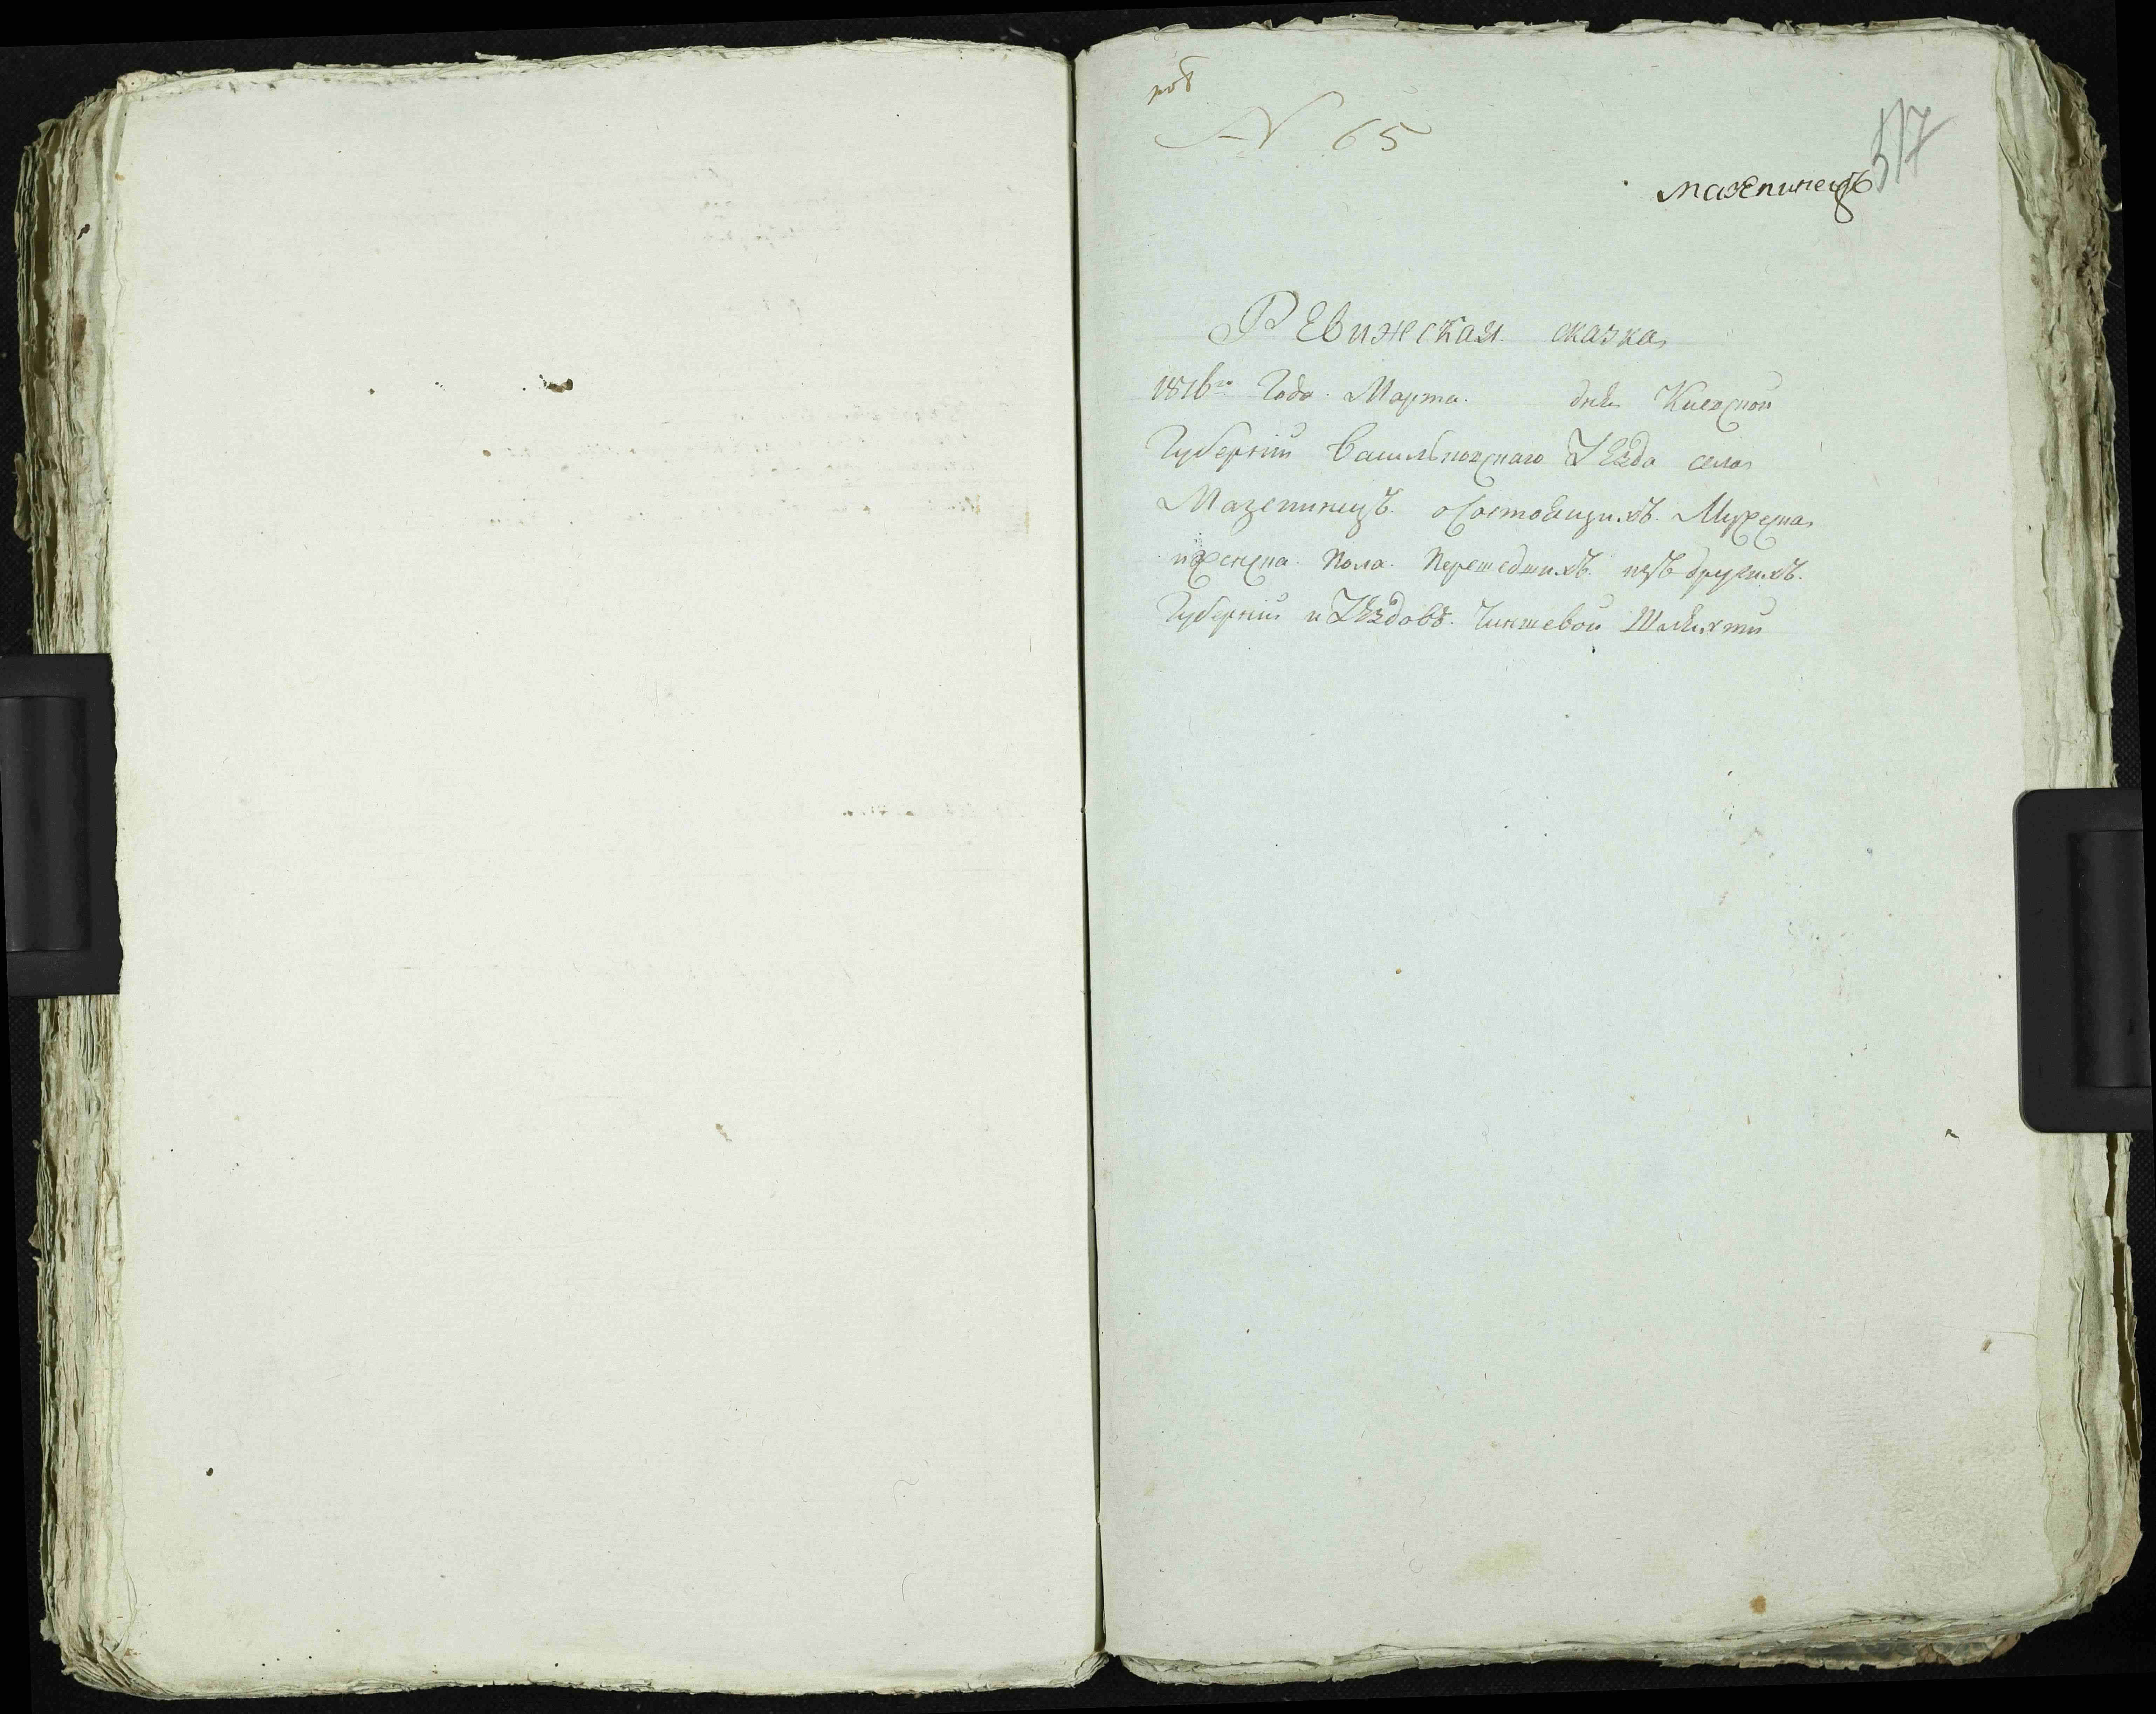 N 65
517
мазепинецъ
Ревижская сказка
1816го Года Марта дня Киевской
Губерніи Васильковскаго Уѣзда села
Мазепинецъ о состоящихъ Мужеска
и женска пола перешедшихъ изъ другихъ
Губерній и Уѣздовъ Чиншевой Шляхти